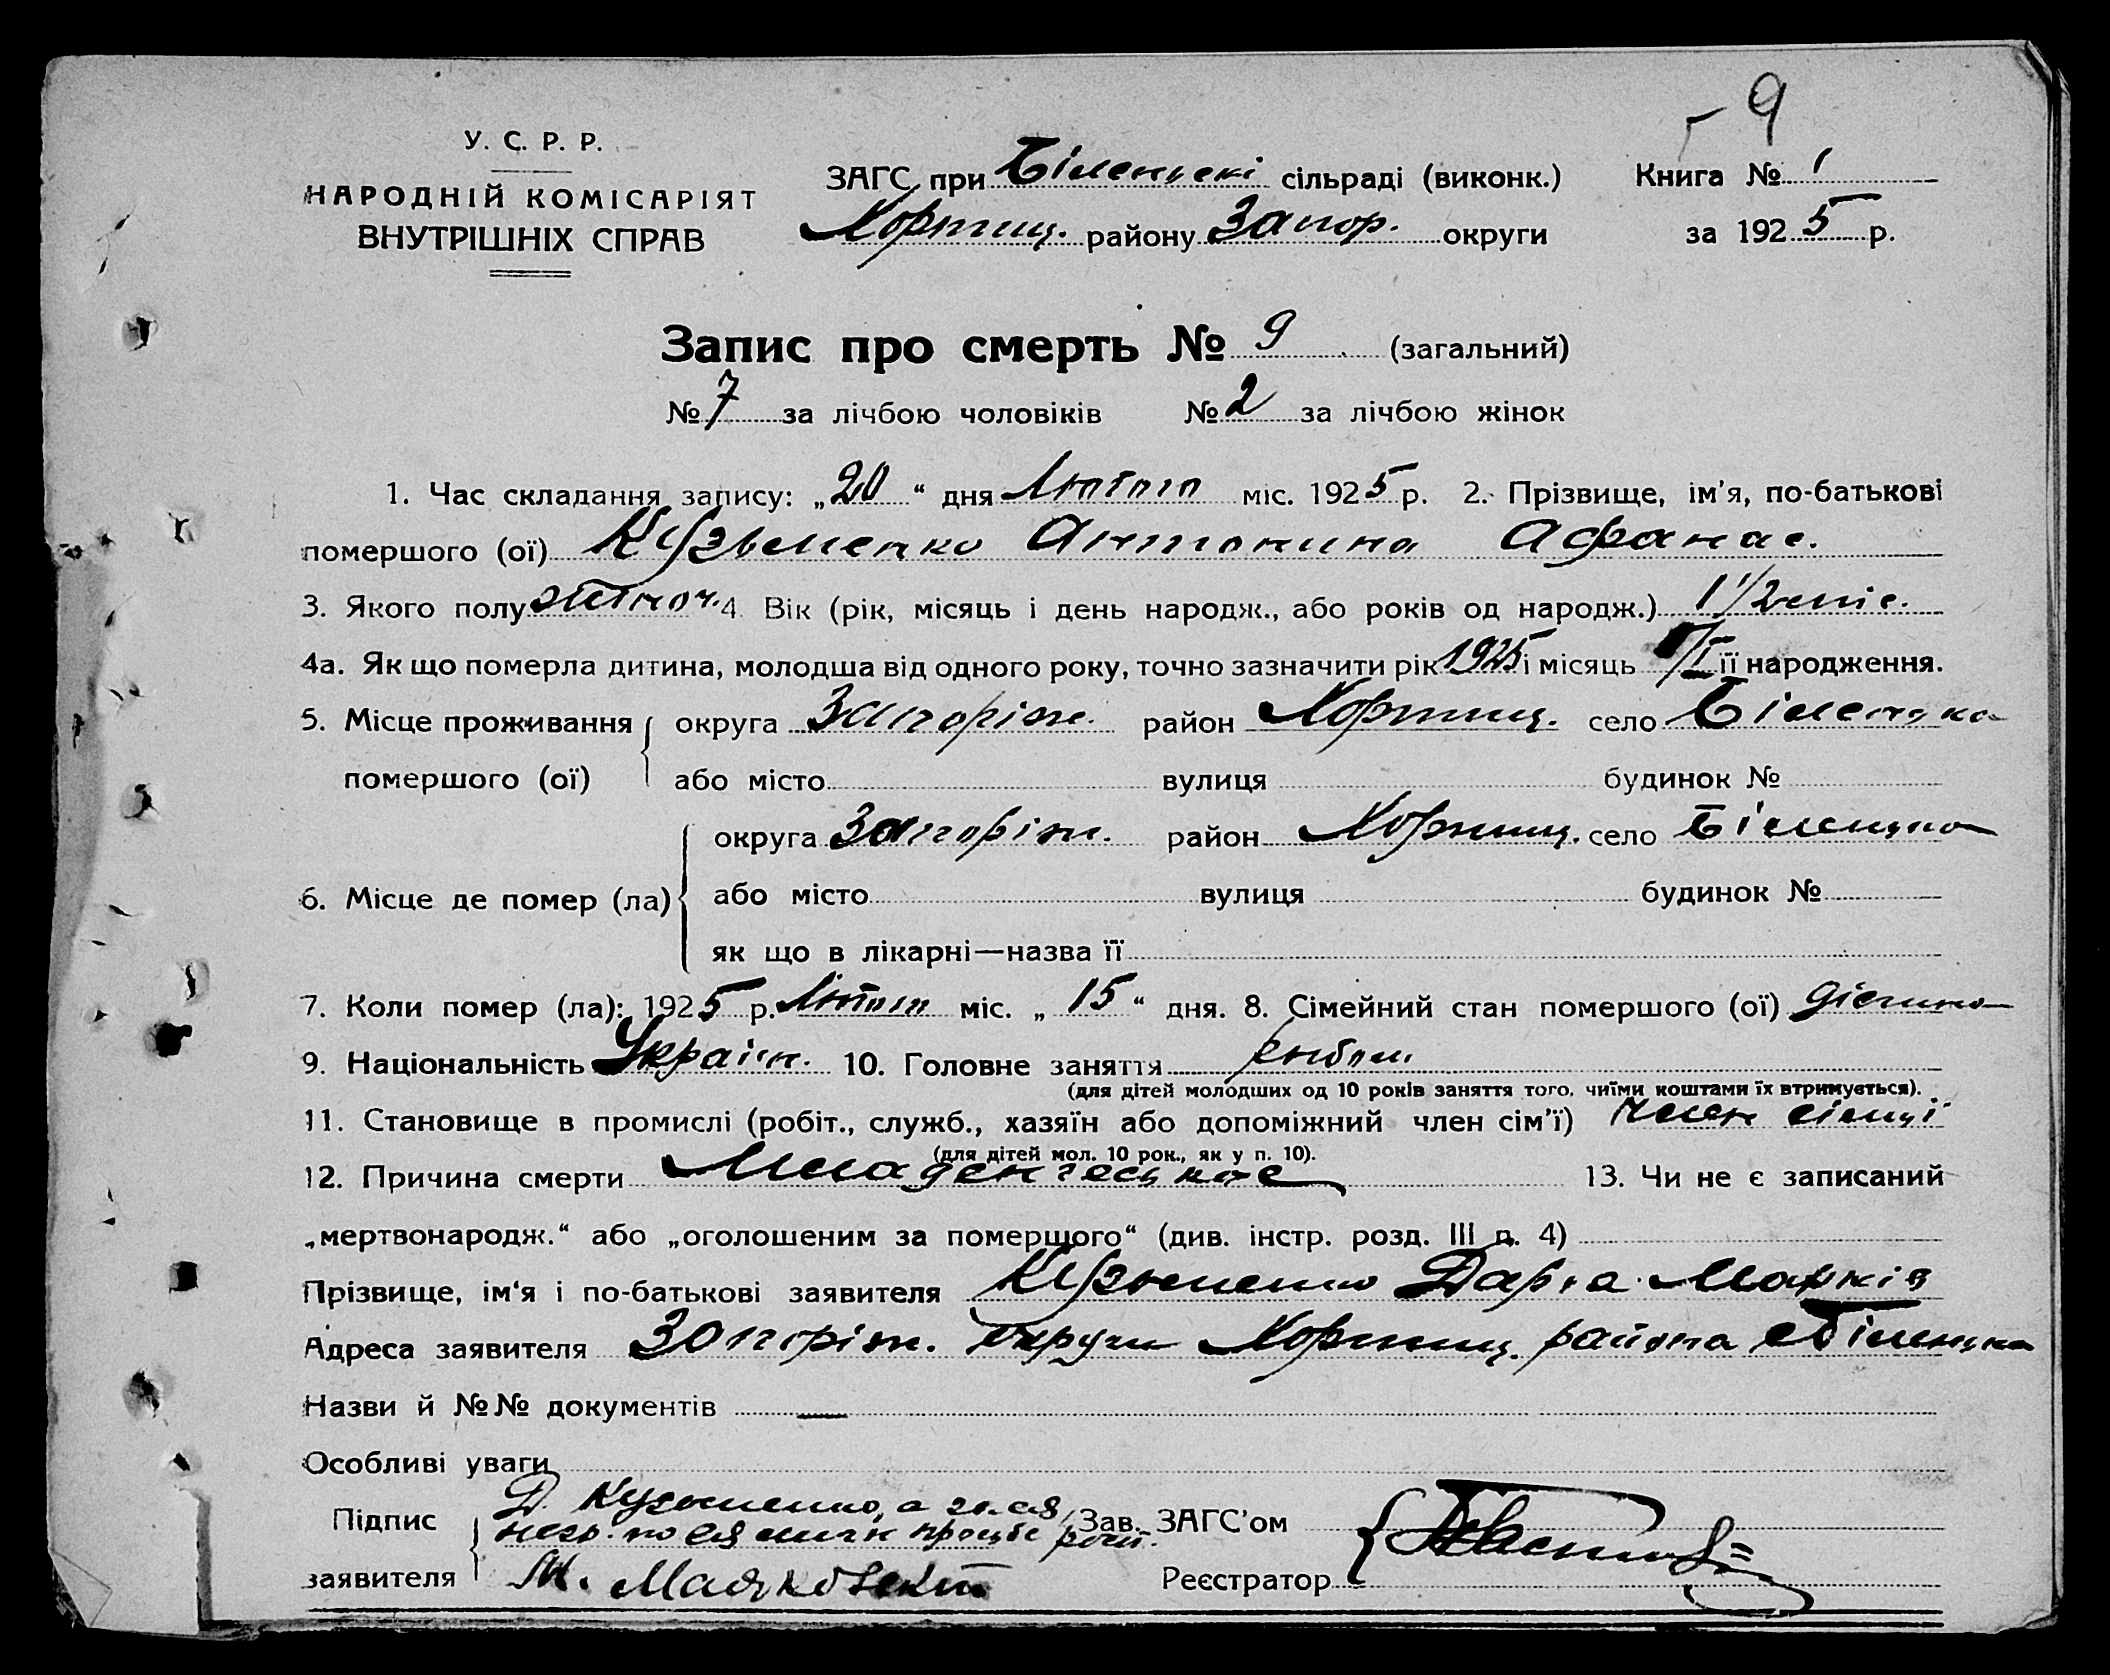 9
У. С. Р. Р.
НАРОДНІЙ КОМІСАРІЯТ
ВНУТРІШНІХ СПРАВ
ЗАГС при Біленьскі сільраді (виконк.)
Хортиц. району Запор. округи
Книга № 1
за 1925 р.
Запис про смерть № 9 (загальний)
№ 7 за лічбою чоловіків № 2 за лічбою жінок
1. Час складання запису: „20“ дня Лютого міс. 1925 р. 2. Прізвище, ім’я, по-батькові
помершого (ої) Кузьменко Антонина Афанас.
3. Якого полу жіноч. 4. Вік (рік, місяць і день народж., або років од народж.) 1 1/2 міс.
4а. Як що померла дитина, молодша від одного року, точно зазначити рік 1925 і місяць /I її народження.
5. Місце проживання округа Запоріж. район Хортиц. село Біленька
помершого (ої) або місто вулиця будинок №
округа Запоріж. район Хортиц. село Біленька
6. Місце де помер (ла) або місто вулиця будинок №
як що в лікарні—назва її
7. Коли помер (ла): 1925 р. Лютого міс. „15“ дня. 8. Сімейний стан помершого (ої)
9. Національність Україн. 10. Головне заняття хлібоп.
(для дітей молодших од 10 років заняття того, чиїми коштами їх втримується).
11. Становище в промислі (робіт., служб., хазяїн або допоміжний член сім’ї) член сімці
(для дітей мол. 10 рок., як у п. 10).
12. Причина смерти Младенческое 13. Чи не є записаний
„мертвонародж.“ або „оголошеним за померщого“ (див. інстр. розд. III п. 4)
Прізвище, ім‘я і по-батькові заявителя Кузьменко Дарія Марків
Адреса заявителя Запоріж. округи Хортиц. района с Біленька
Назви й №№ документів —
Особливі уваги
Підпис Д. Кузьменко, а за ея Зав. ЗАГС’ом
негр. по ея личн просьбе росп.
заявителя М. Маяковский Реєстратор